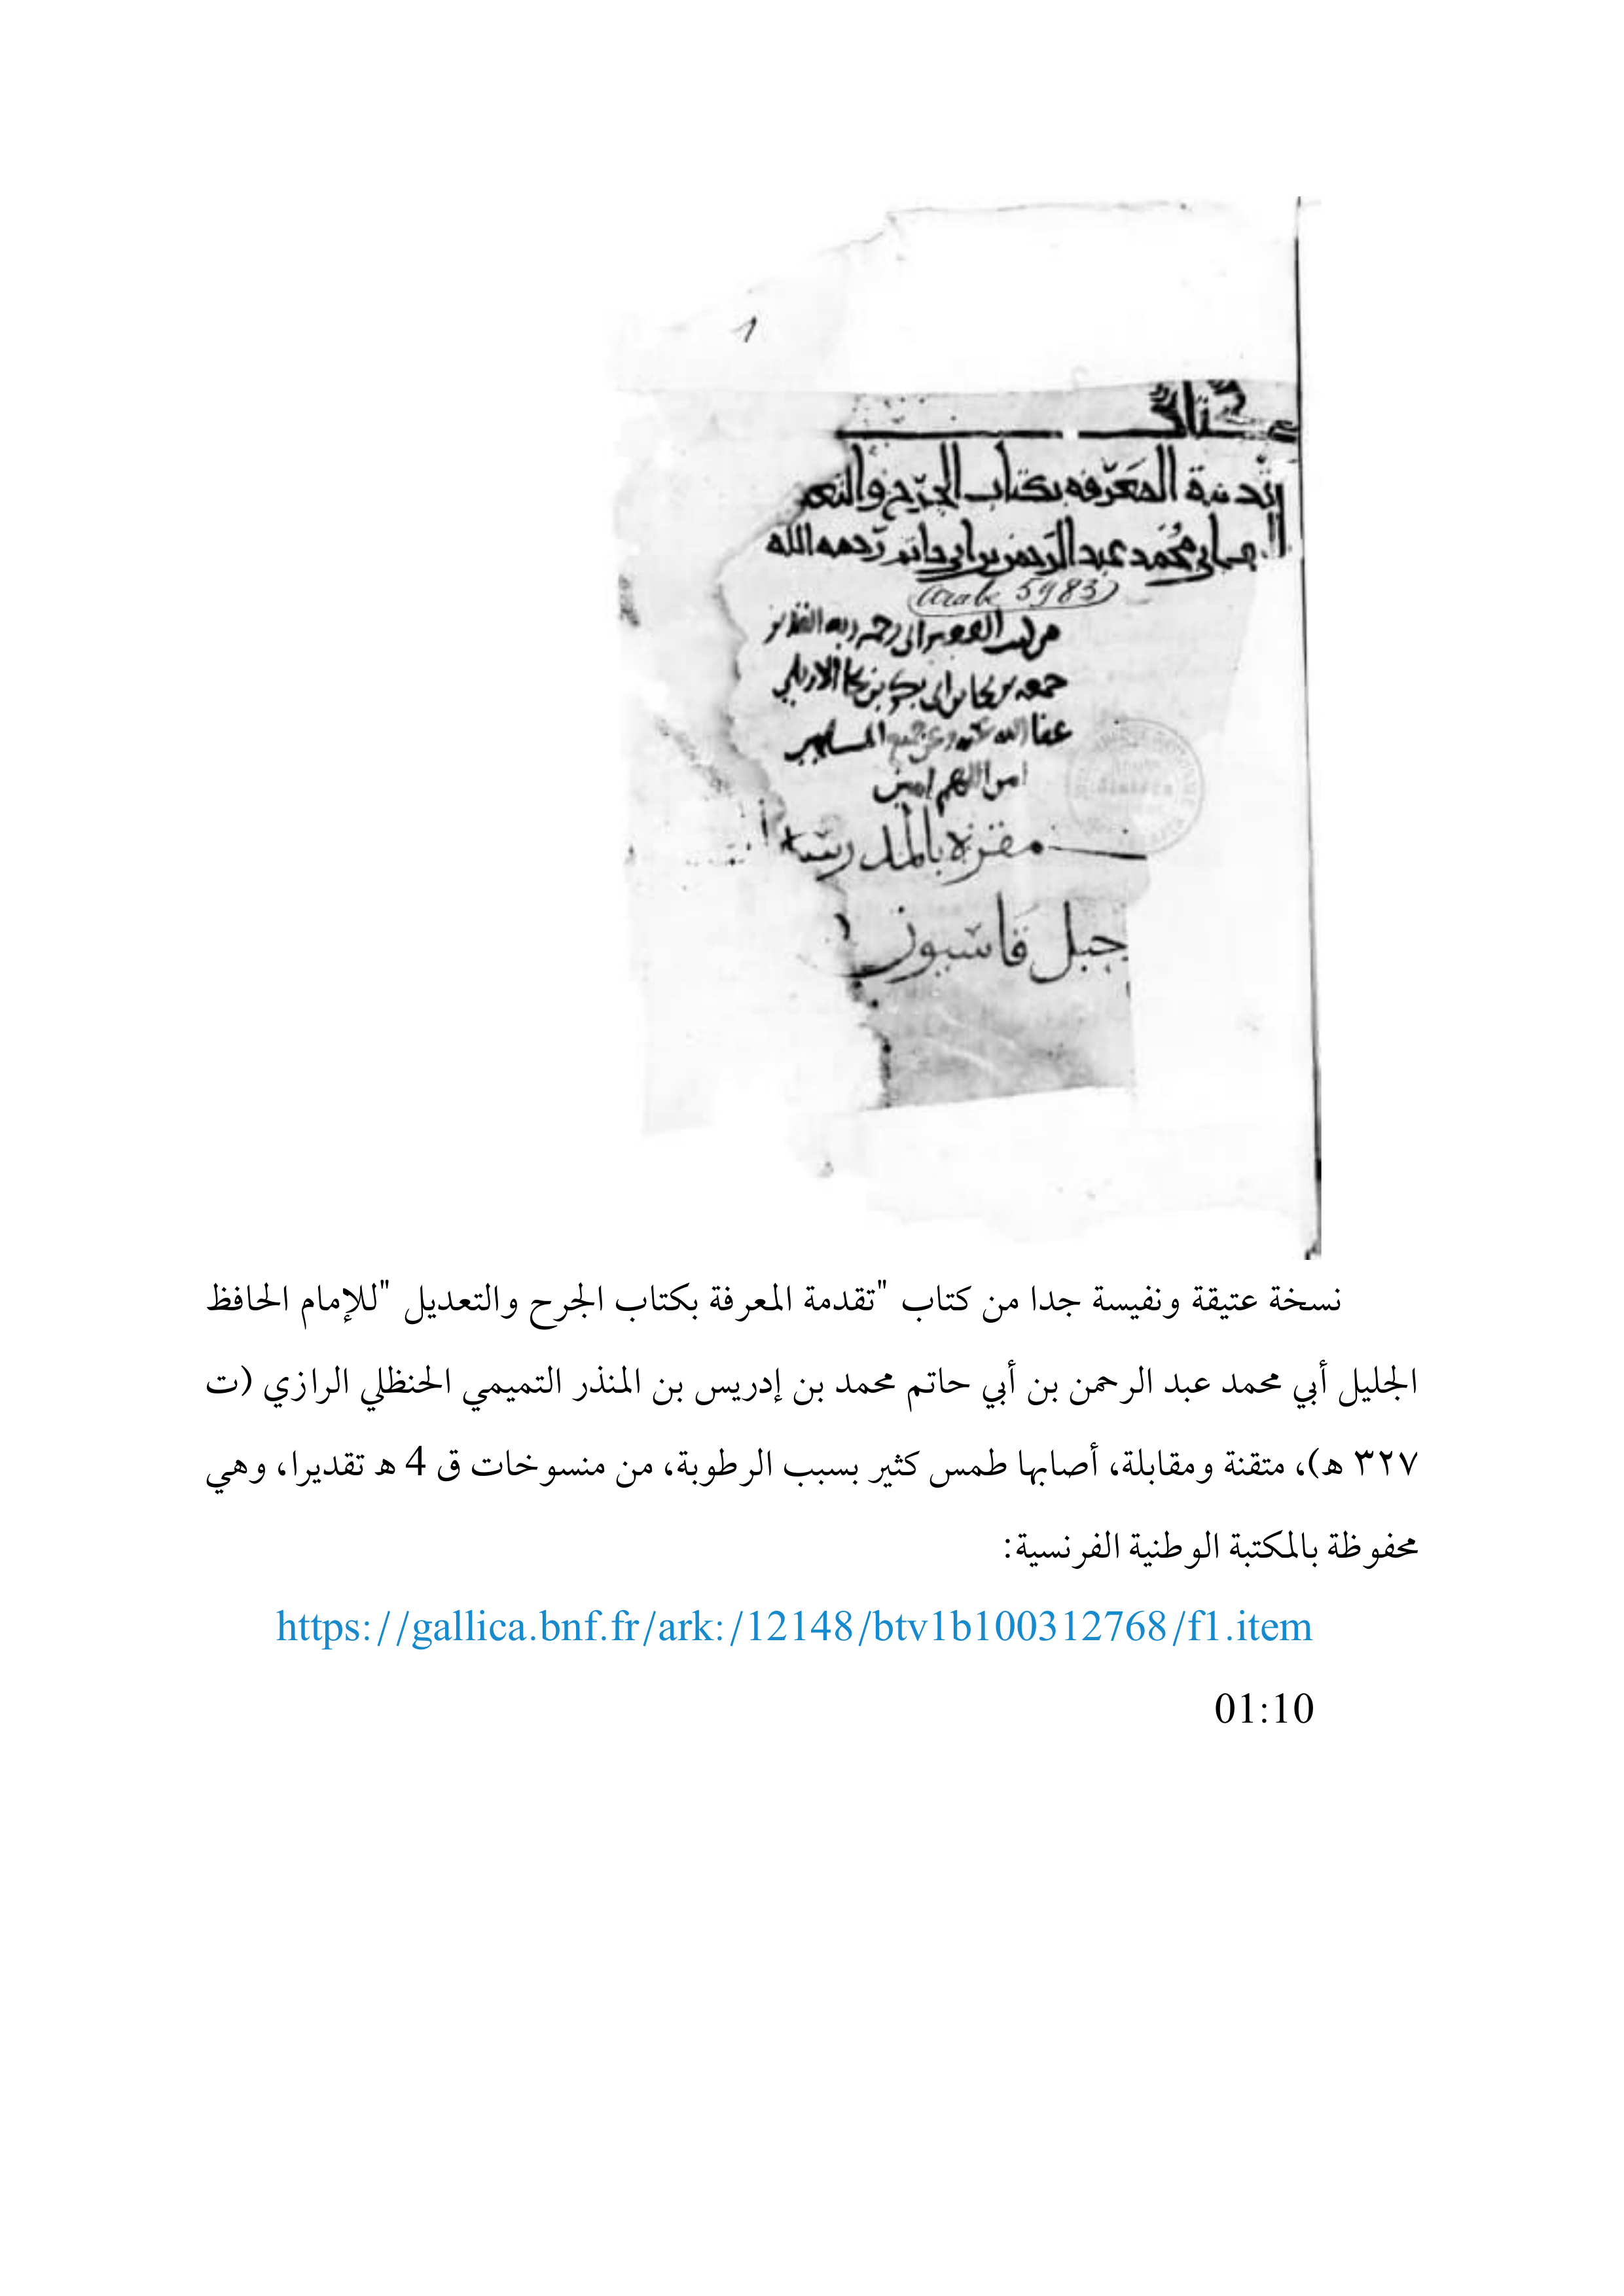 1
كتاب
تقدمة المَعَرّفه بكتاب الجَرّح والتعد
لابي مُحَمد عبد الرَحمن بن ابي حاتم رَحمه الله
Arabe 5983
من كتب الفقير الى رحمه ربه القدير
جمعه بن بن ابي بكر بن الاربلي
عفا الله عنه وعن جميع المسلمين
امين اللهم امين
مقره بالمدرسة
جبل قَاسيون
نسخة عتيقة ونفيسة جدا من كتاب "تقدمة المعرفة بكتاب الجرح والتعديل "للإمام الحافظ
الجليل أبي محمد عبد الرحمن بن أبي حاتم محمد بن إدريس بن المنذر التميمي الحنظلي الرازي (ت
٣٢٧ ه)، متقنة ومقابلة، أصابها طمس كثير بسبب الرطوبة، من منسوخات ق 4 ه تقديرا، وهي
محفوظة بالمكتبة الوطنية الفرنسية:
https://gallica.bnf.fr/ark:/12148/btv1b100312768/f1.item
01:10